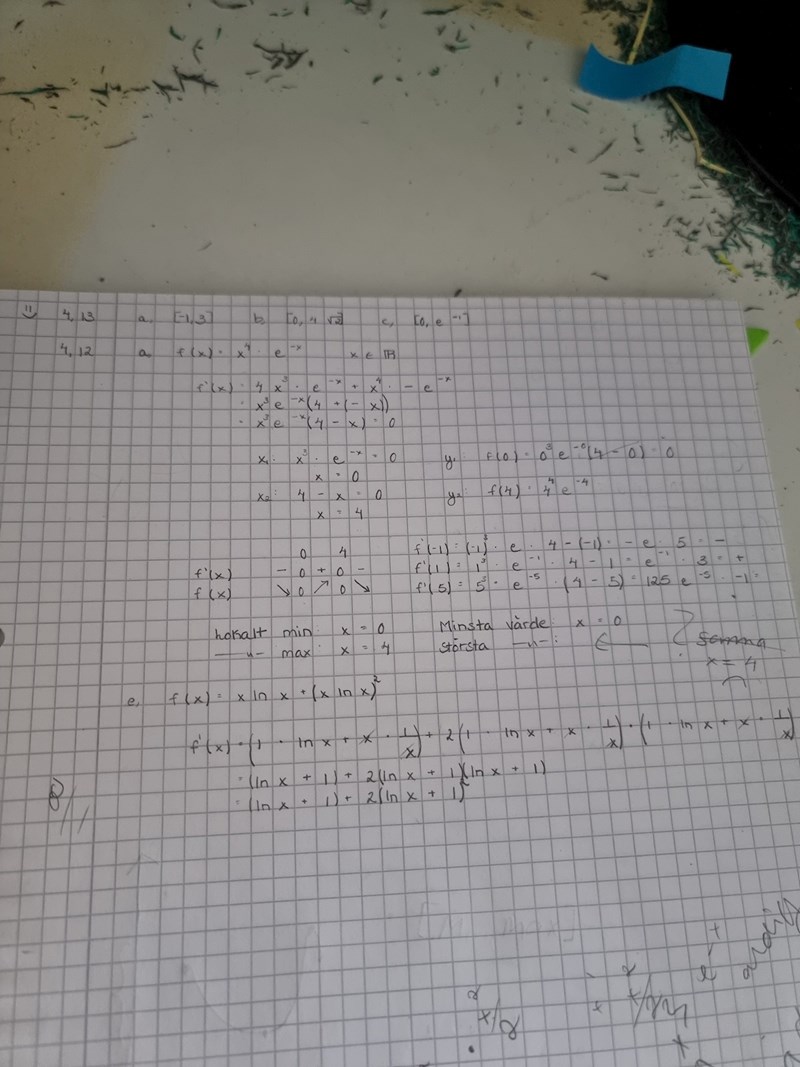 4,13 a, [-1,3] b, [0, 4√2] c, [0, e⁻¹]
4,12 a, f(x) = x⁴ · e⁻ˣ x ∈ ℝ
f'(x) = 4x³ · e⁻ˣ + x⁴ · -e⁻ˣ
= x³e⁻ˣ(4 + (-x))
= x³e⁻ˣ(4 - x) = 0
x₁: x³ · e⁻ˣ = 0 y₁: f(0) = 0³e⁻⁰(4 - 0) = 0
x = 0
x₂: 4 - x = 0 y₂: f(4) = 4⁴e⁻⁴
x = 4
0 4 f'(-1) = (-1)³ · e · 4 - (-1) = -e · 5 = -
f'(x) - 0 + 0 - f'(1) = 1³ · e⁻¹ · 4 - 1 = e⁻¹ · 3 = +
f(x) ↘ 0 ↗ 0 ↘ f'(5) = 5³ · e⁻⁵ · (4 - 5) = 125 e⁻⁵ · -1 =
lokalt min: x = 0 Minsta värde: x = 0
—"— max: x = 4 största —"—: ← samma
x = 4
e, f(x) = x ln x + (x ln x)²
f'(x) = (1 · ln x + x · 1/x) + 2(1 · ln x + x · 1/x) · (1 · ln x + x · 1/x)
= (ln x + 1) + 2(ln x + 1)(ln x + 1)
= (ln x + 1) + 2(ln x + 1)²